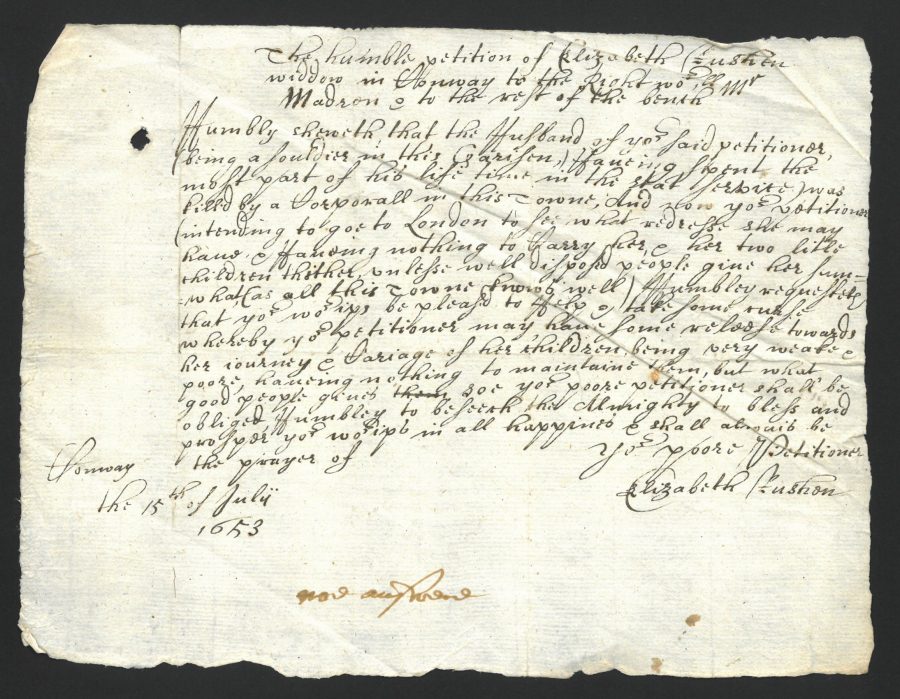 The humble petition of Elizabeth
widdow in Conway to the Right wor:ll Mr
Madron & to the rest of the bench
Humbly sheweth that the Husband of yor said petitioner,
(being a souldier in this Garisen,) Haveing spent the
most part of his life time in the stat service) was
killed by a Corporall in this Towne, And now yor petitioner
(intending to goe to London to see what redresse she may
have & Haveing nothing to Carry her & her two litle
children thither, unlesse well disposed people give her sum-
-what (as all this Towne knows well) Humbley requesteth
that yor worips be pleasd to Help & take some curse
whereby yor petitioner may have some releese towards
her journey & Cariage of her children being very weake &
poore haveing nothing to maintaine them, but what
good people gives them soe yor poore petitioner shall be
obliged Humbley to beseech the Almighty to bless and
prosper yor worips in all happines & shall alwais be
the prayer of yor poore Petitioner
Conway Elizabeth
the 15th of July
1653
noe answere